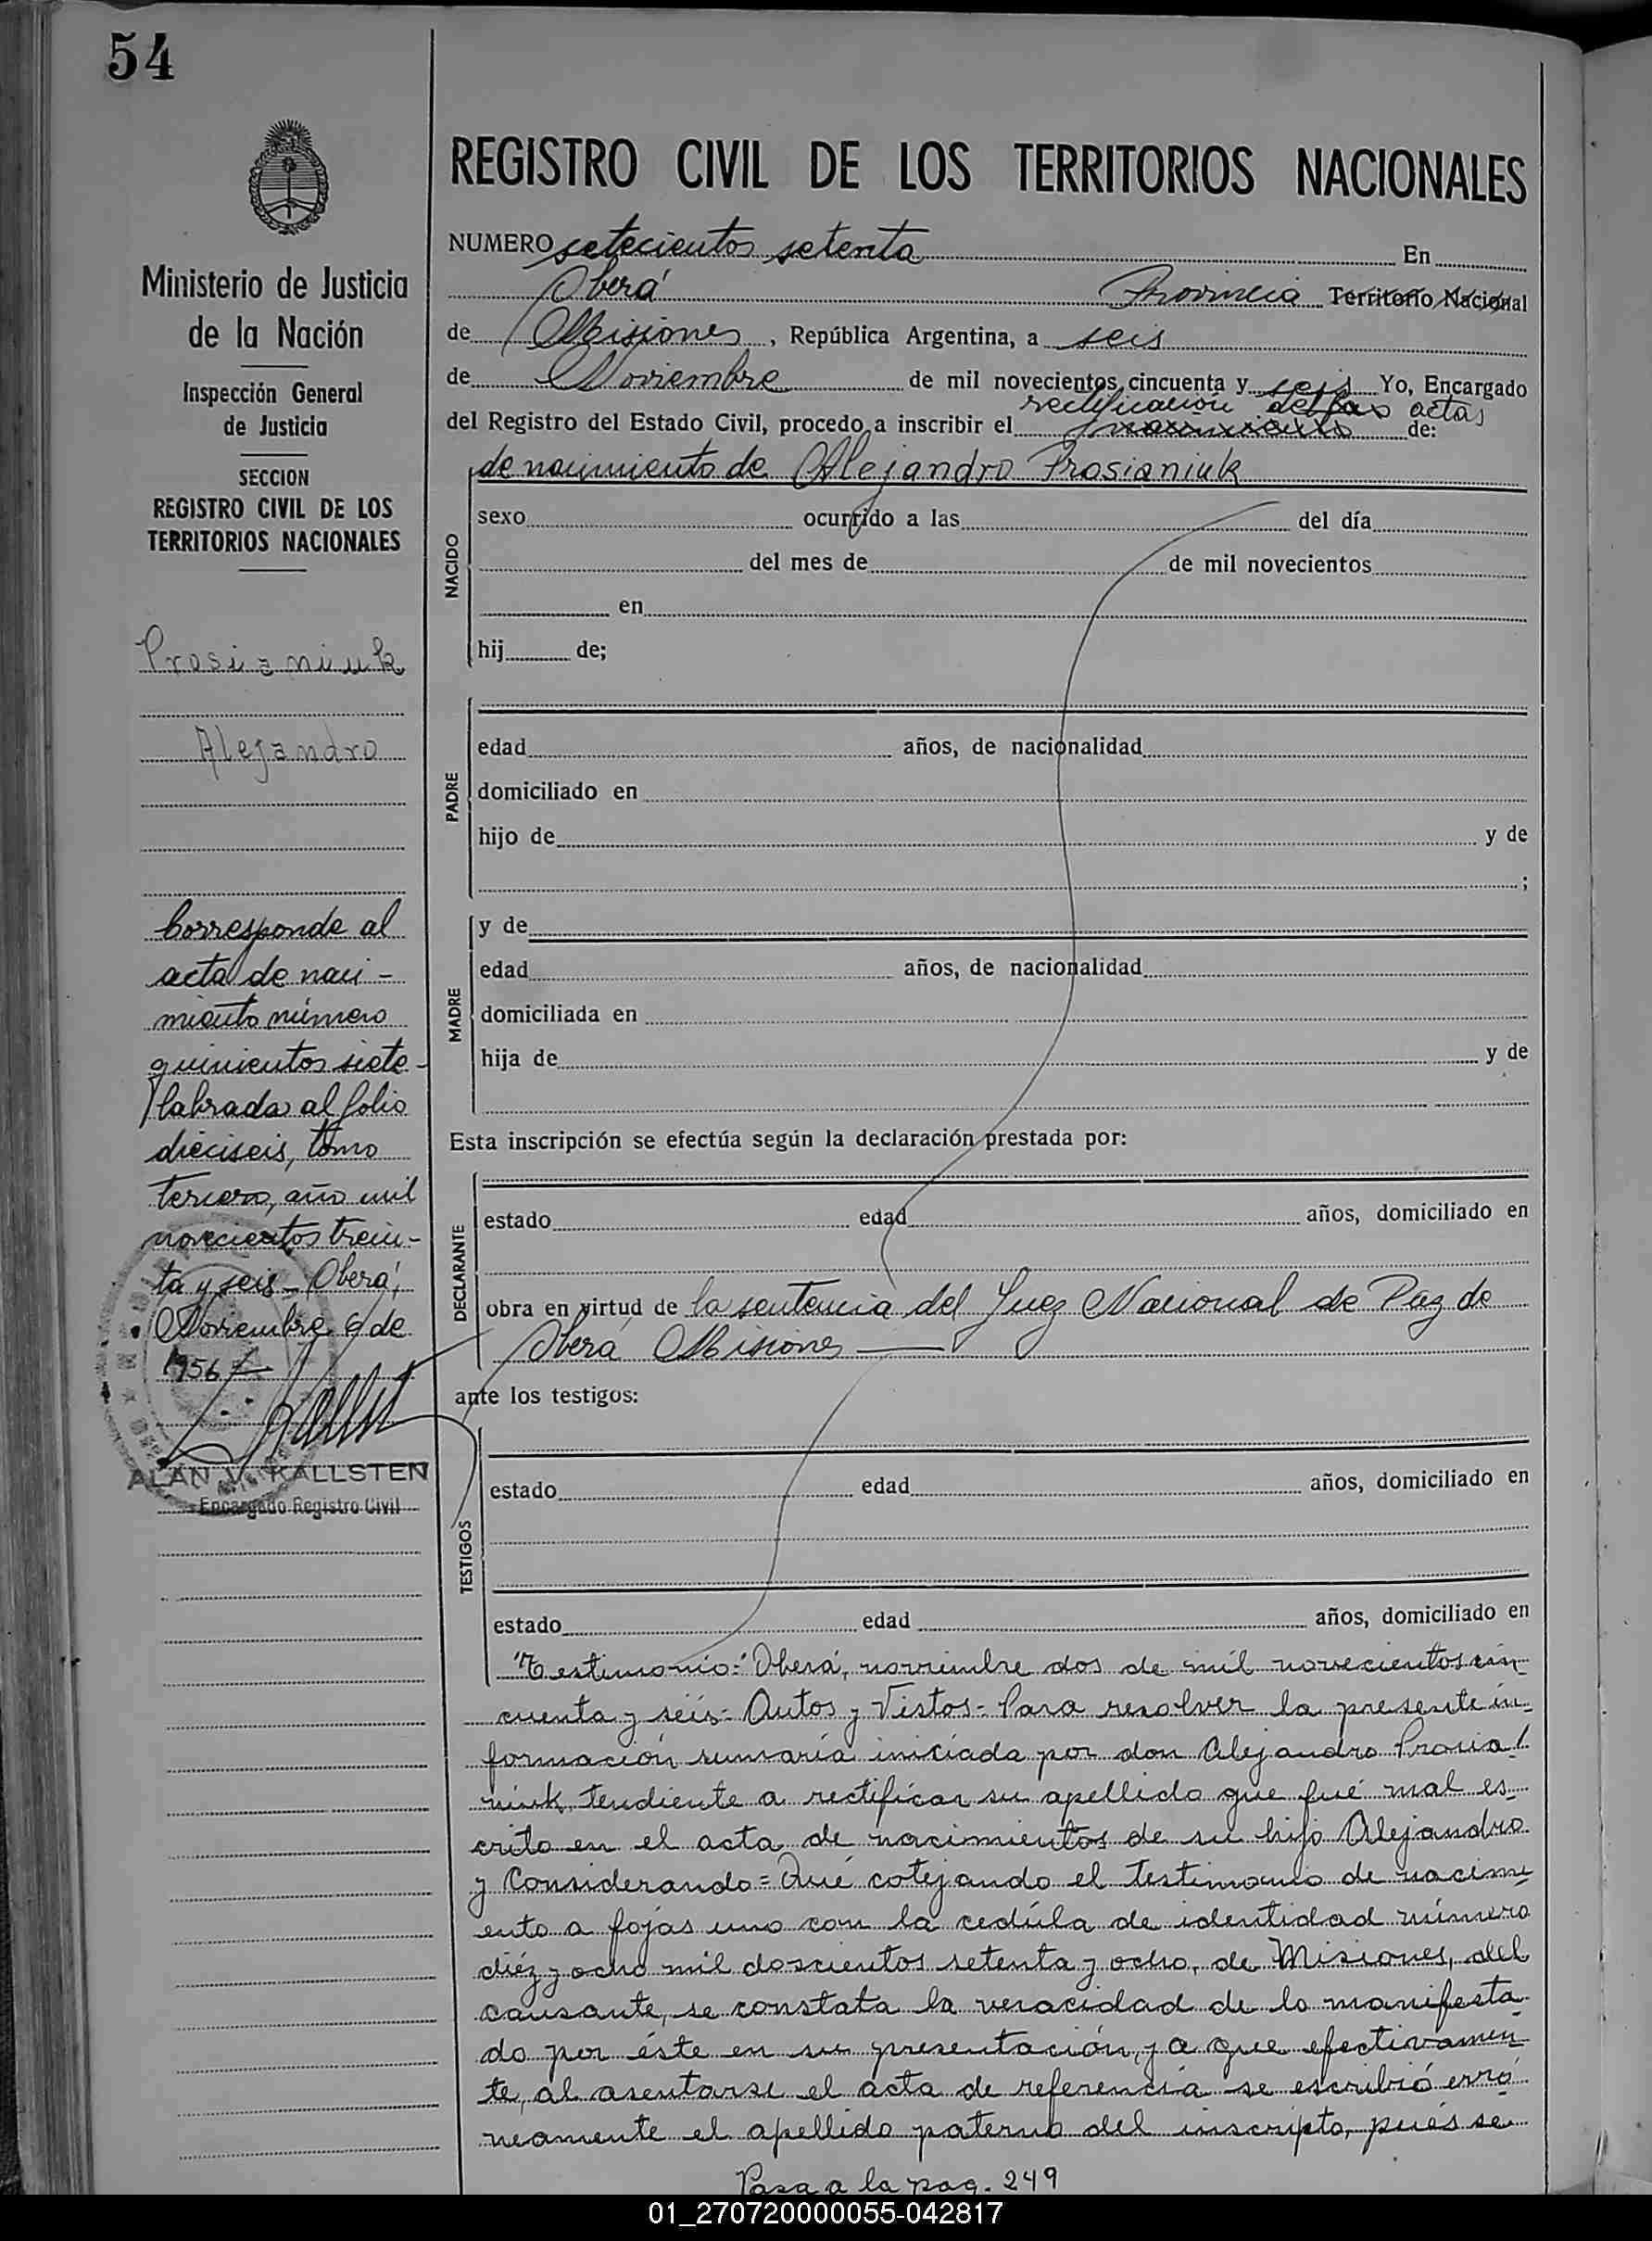 54
Ministerio de Justicia
de la Nación
Inspección General
de Justicia
SECCION
REGISTRO CIVIL DE LOS
TERRITORIOS NACIONALES
Prosianiuk
Alejandro
Corresponde al
acta de naci-
miento número
quinientos siete
labrada al folio
dieciseis, tomo
tercero, año mil
novecientos trein-
ta y seis - Oberá,
Noviembre 6 de
1956
ALAN V. KALLSTEN
Encargado Registro Civil
REGISTRO CIVIL DE LOS TERRITORIOS NACIONALES
NUMERO setecientos setenta En
Oberá Provincia Territorio Nacional
de Misiones, República Argentina, a seis
de Noviembre de mil novecientos cincuenta y seis Yo, Encargado
rectificación actas
del Registro del Estado Civil, procedo a inscribir el de:
de nacimiento de Alejandro Prosianiuk
NACIDO
sexo ocurrido a las del día
del mes de de mil novecientos
en
hij de;
PADRE
edad años, de nacionalidad
domiciliado en
hijo de y de
;
MADRE
y de
edad años, de nacionalidad
domiciliada en
hija de y de
Esta inscripción se efectúa según la declaración prestada por:
DECLARANTE
estado edad años, domiciliado en
obra en virtud de la sentencia del Juez Nacional de Paz de
Oberá Misiones
ante los testigos:
TESTIGOS
estado edad años, domiciliado en
estado edad años, domiciliado en
"Testimonio:" Oberá, noviembre dos de mil novecientos cin-
cuenta y seis- Autos y Vistos- Para resolver la presente in-
formación sumaria iniciada por don Alejandro Prosia/
niuk, tendiente a rectificar su apellido que fué mal es-
crito en el acta de nacimientos de su hijo Alejandro
y Considerando= Qué cotejando el testimonio de nacimi
ento a fojas uno con la cedúla de identidad número
diéz y ocho mil doscientos setenta y ocho, de Misiones, del
causante, se constata la veracidad de lo manifesta-
do por éste en su presentación, ya que efectivamen-
te, al asentarse el acta de referencia se escribió erró
neamente el apellido paterno del inscripto, pués se
Pasa a la pag. 249
01_270720000055-042817